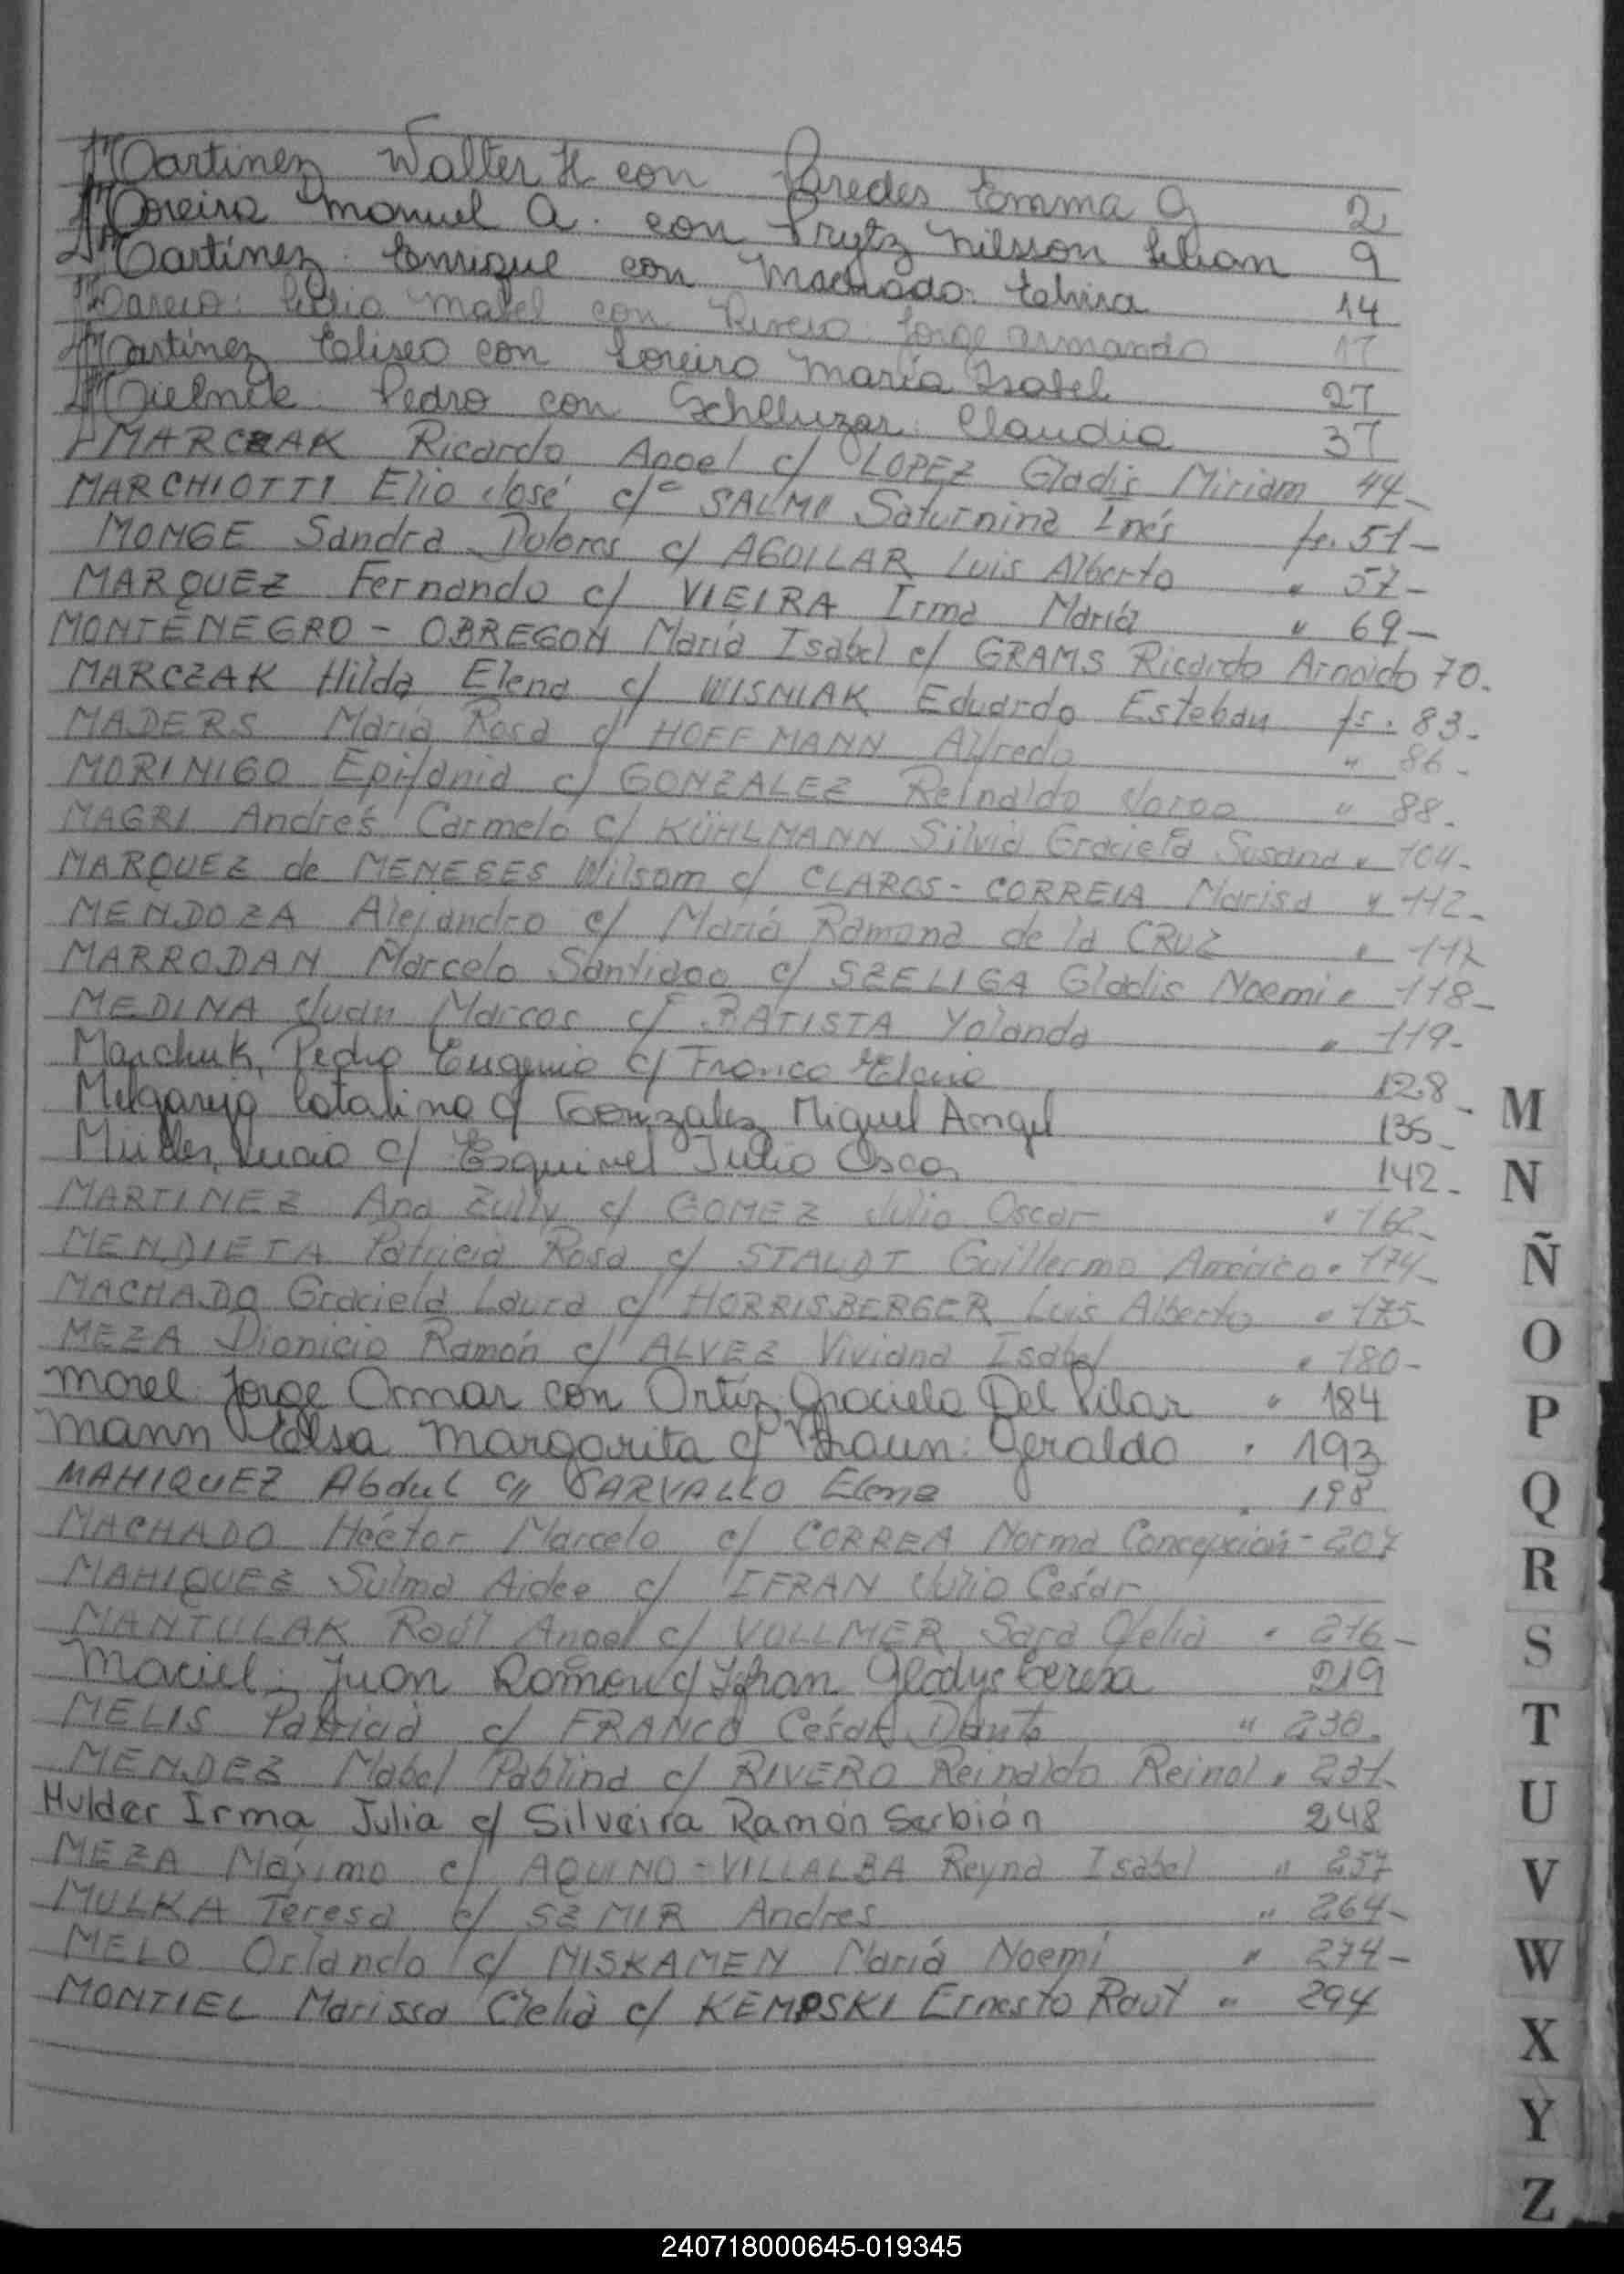 Martinez Walter H con Paredes Emma G 2
Moreira Manuel A. con Prytz Nilsson Lilian 9
Martínez Enrique con Machado Elvira 14
Mabel con Jorge Armando 17
Martínez Eliseo con Loreiro María Isabel 27
Mielnik Pedro con Claudia 37
MARCZAK Ricardo Angel c/ LOPEZ Gladis Miriam 44-
MARCHIOTTI Elio José c/ Saturnina Inés fs. 51-
MONGE Sandra Dolores c/ AGUILAR Luis Alberto " 57-
MARQUEZ Fernando c/ VIEIRA Irma María " 69-
MONTENEGRO - OBREGON María Isabel c/ GRAMS Ricardo Arnoldo 70.
MARCZAK Hilda Elena c/ WISNIAK Eduardo Esteban fs. 83-
MADERS María Rosa c/ HOFFMANN Alfredo " 86-
MORINIGO Epifania c/ GONZALEZ Reinaldo Jorge " 88-
MAGRI Andrés Carmelo c/ KÜHLMANN Silvia Graciela Susana " 104-
MARQUEZ de MENESES Wilsom c/ CLAROS - CORREIA Marisa " 112-
MENDOZA Alejandro c/ María Ramona de la CRUZ " 117
MARRODAN Marcelo Santiago c/ SZELIGA Gladis Noemi " 118-
MEDINA Juan Marcos c/ BATISTA Yolanda " 119-
Marchuk, Pedro Eugenio c/ Franco 128-
Melgarejo Catalina c/ Gonzalez Miguel Angel 135-
Müller, Lucia c/ Esquivel Julio Oscar 142-
MARTINEZ Ana Zully c/ GOMEZ Julio Oscar " 162-
MENDIETA Patricia Rosa c/ STAUDT Guillermo Américo " 174-
MACHADO Graciela Laura c/ HORRISBERGER Luis Alberto " 175-
MEZA Dionicio Ramón c/ ALVEZ Viviana Isabel " 180-
Morel Jorge Omar con Ortíz Graciela Del Pilar " 184
Mann Elsa Margarita c/ Braun: Geraldo " 193
MAHIQUEZ Abdul c/ CARVALLO Elena " 198
MACHADO Héctor Marcelo c/ CORREA Norma Concepción - 207
MAHIQUEZ Sulma Aidee c/ IFRAN Julio César
MANTULAK Raúl Angel c/ VOLLMER Sara Ofelia " 216-
Maciel: Juan Ramón c/ Ifran Gladys Teresa 219
MELIS Patricia c/ FRANCO César Dante " 230.
MENDEZ Mabel Pablina c/ RIVERO Reinaldo Reinol " 231-
Mulder Irma Julia c/ Silveira Ramón Serbián 248
MEZA Máximo c/ AQUINO - VILLALBA Reyna Isabel " 257
MULKA Teresa c/ SZMIR Andres " 264-
MELO Orlando c/ NISKANEN María Noemí " 274-
MONTIEL Marissa Clelia c/ KEMPSKI Ernesto Raul " 294
M
N
Ñ
O
P
Q
R
S
T
U
V
W
X
Y
Z
240718000645-019345